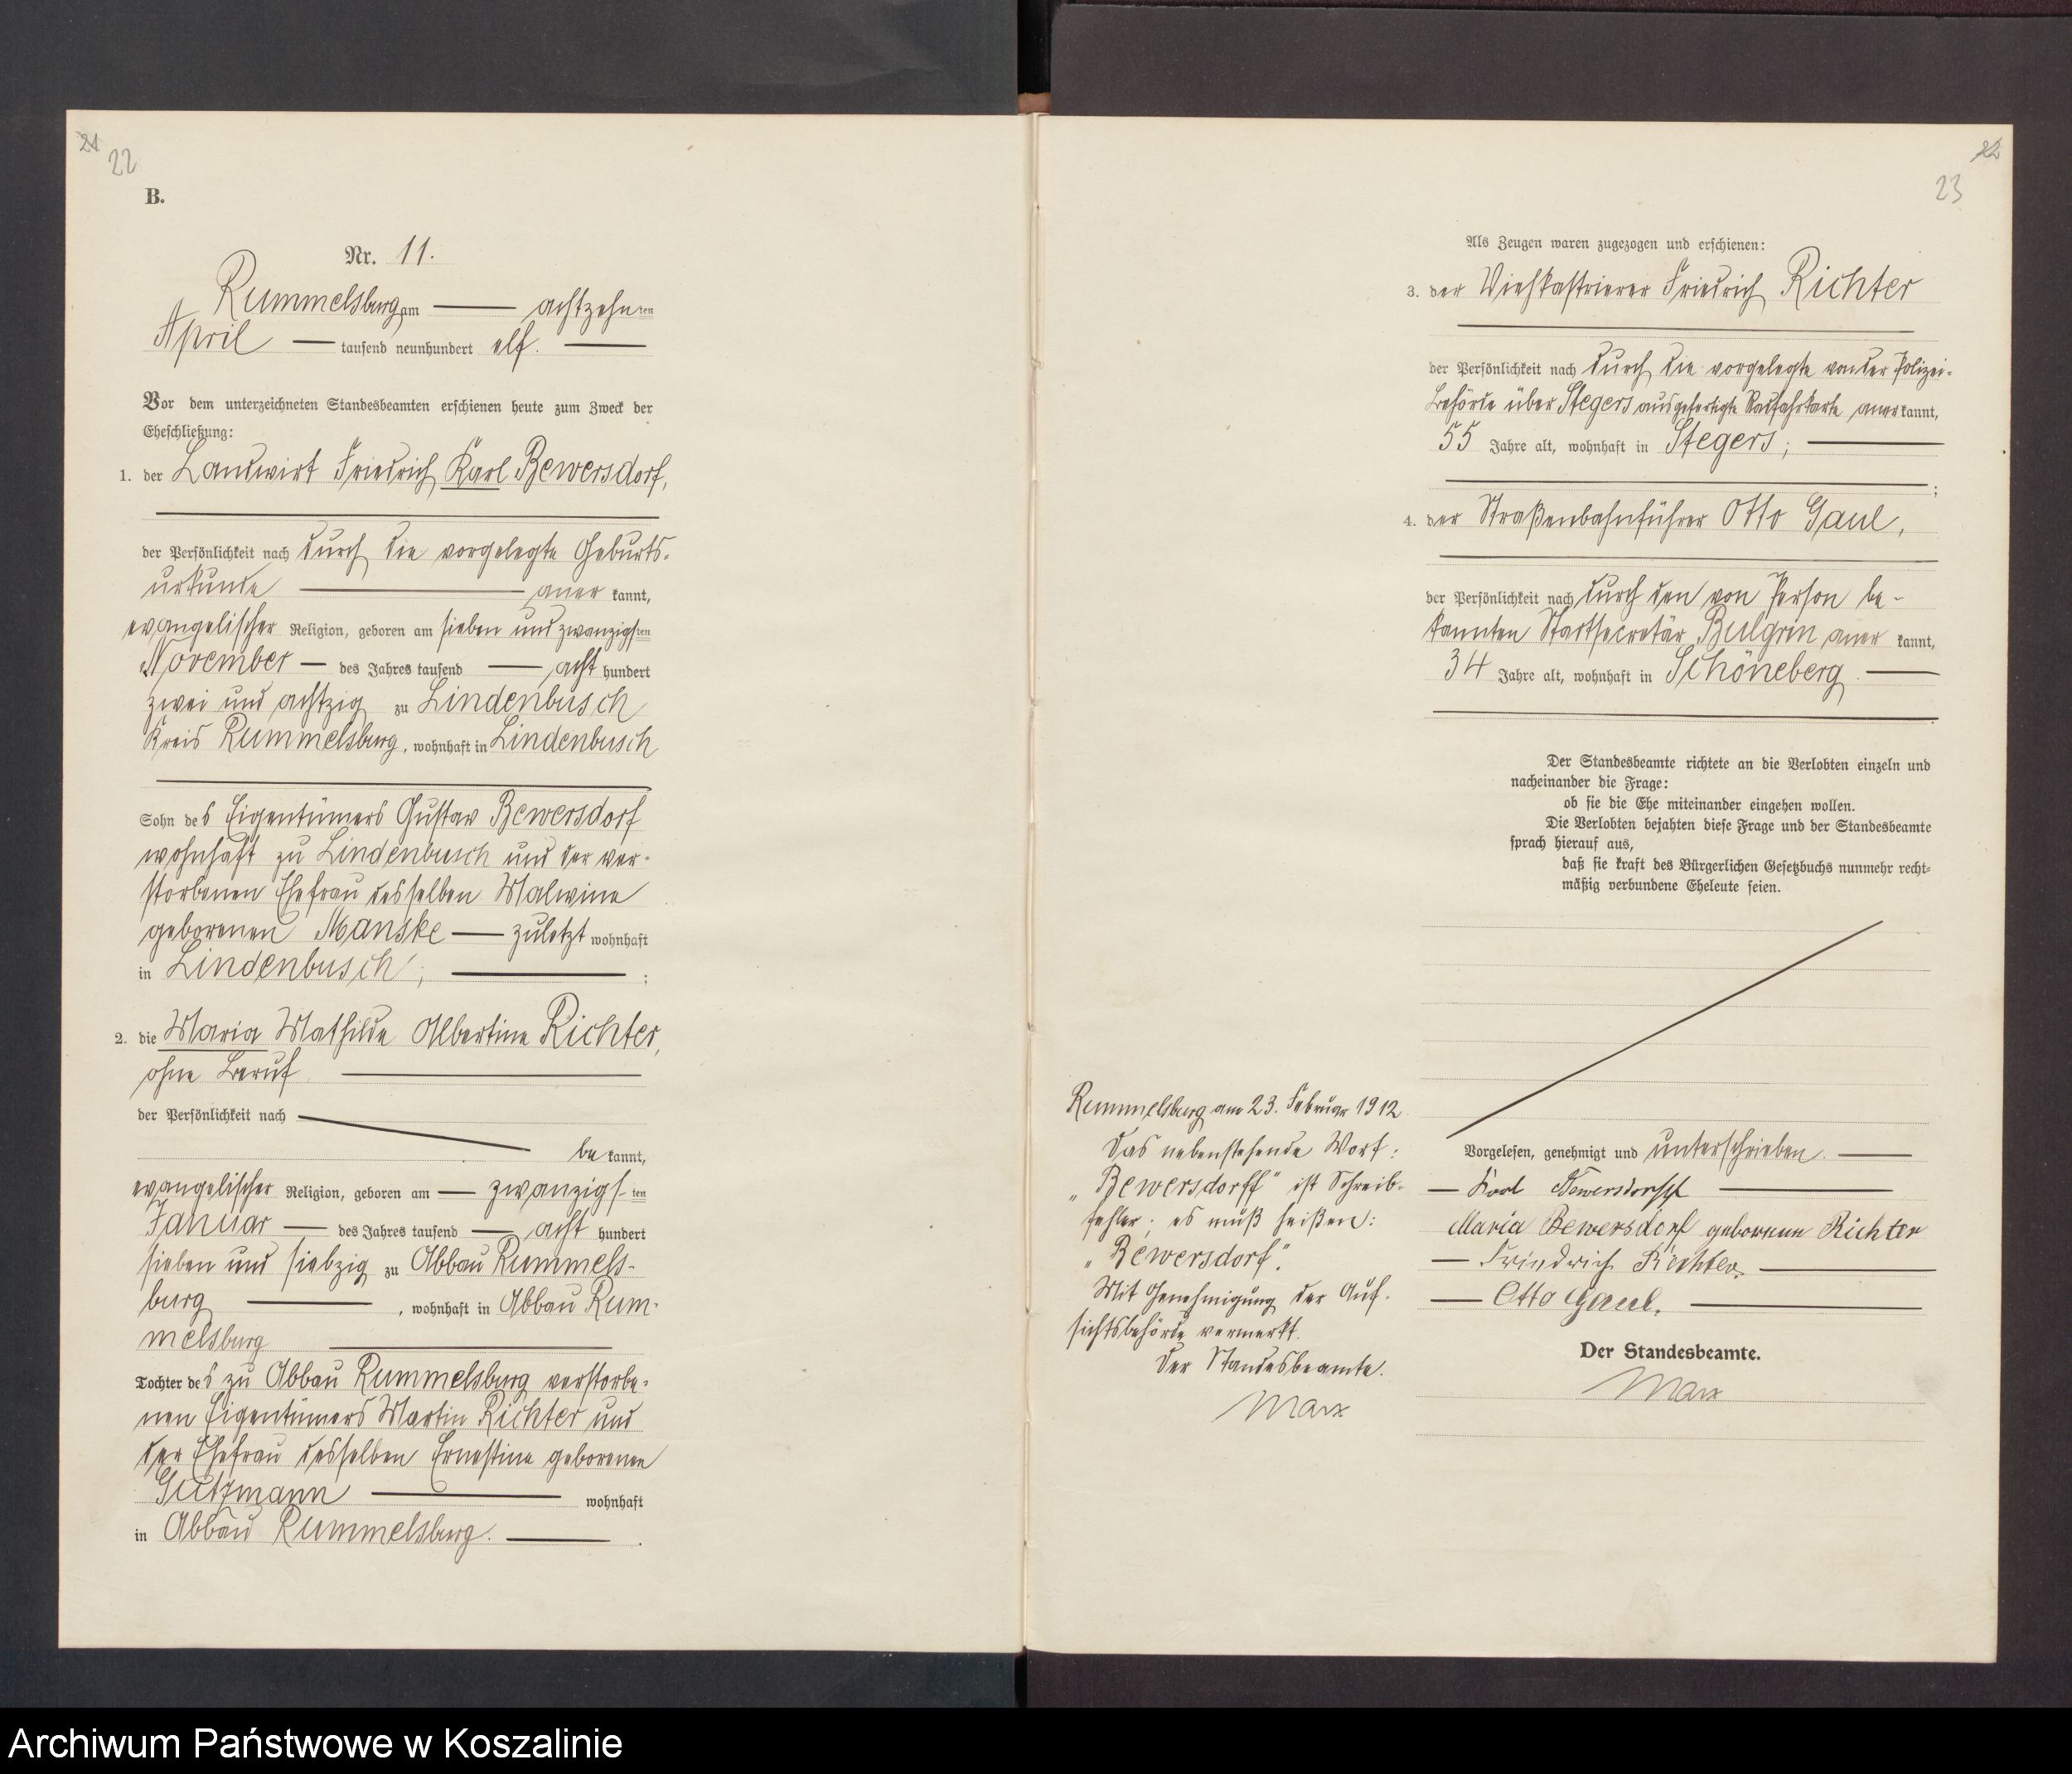 21
22
B.
Nr. 11.
Rummelsburg am achtzehnten
April tausend neunhundert elf.
Vor dem unterzeichneten Standesbeamten erschienen heute zum Zweck der
Eheschließung:
1. der Landwirt Friedrich Karl Bewersdorf,
der Persönlichkeit nach durch die vorgelegte Geburts-
urkunde anerkannt,
evangelischer Religion, geboren am sieben und zwanzigsten
November des Jahres tausend acht hundert
zwei und achtzig zu Lindenbusch
Kreis Rummelsburg, wohnhaft in Lindenbusch
Sohn des Eigentümers Gustav Bewersdorf
wohnhaft zu Lindenbusch und der ver-
storbenen Ehefrau desselben Malwine
geborenen Manske zuletzt wohnhaft
in Lindenbusch;
2. die Maria Mathilde Albertine Richter,
ohne Beruf
der Persönlichkeit nach
bekannt,
evangelischer Religion, geboren am zwanzigsten
Januar des Jahres tausend acht hundert
sieben und siebzig zu Abbau Rummels-
burg, wohnhaft in Abbau Rum-
melsburg
Tochter des zu Abbau Rummelsburg verstorbe-
nen Eigentümers Martin Richter und
der Ehefrau desselben Ernestine geborenen
Gutzmann wohnhaft
in Abbau Rummelsburg.
22
23
Als Zeugen waren zugezogen und erschienen:
3. der Viehkastrierer Friedrich Richter
der Persönlichkeit nach durch die vorgelegte von der Polizei-
Behörde über Stegers ausgefertigte Radfahrkarte anerkannt,
55 Jahre alt, wohnhaft in Stegers;
4. der Straßenbahnführer Otto Gaul,
der Persönlichkeit nach durch den von Person be-
kannten Stadtsecretär Bulgrin anerkannt,
34 Jahre alt, wohnhaft in Schöneberg
Der Standesbeamte richtete an die Verlobten einzeln und
nacheinander die Frage:
ob sie die Ehe miteinander eingehen wollen.
Die Verlobten bejahten diese Frage und der Standesbeamte
sprach hierauf aus,
daß sie kraft des Bürgerlichen Gesetzbuchs nunmehr recht-
mäßig verbundene Eheleute seien.
Rummelsburg am 23. Februar 1912
Das nebenstehende Wort:
„Bewersdorff" ist Schreib-
fehler; es muß heißen:
„Bewersdorf".
Mit Genehmigung der Auf-
sichtsbehörde vermerkt.
Der Standesbeamte.
Marx
Vorgelesen, genehmigt und unterschrieben.
Karl Bewersdorff
Maria Bewersdorf geborene Richter
Friedrich Richter.
Otto Gaul.
Der Standesbeamte.
Marx
Archiwum Państwowe w Koszalinie